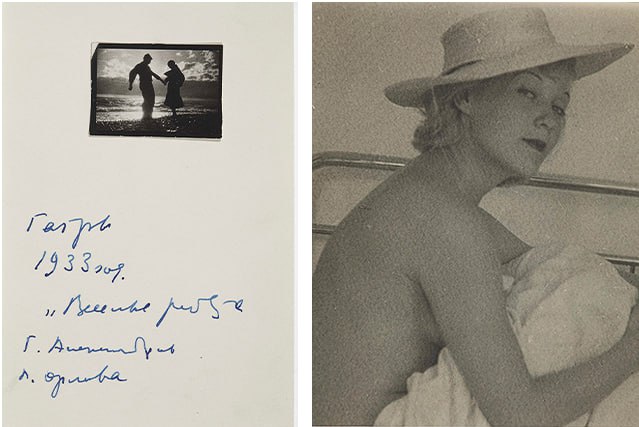 Гагры
1933 год.
„Веселые ребята
Г. Александров
Л. Орлова